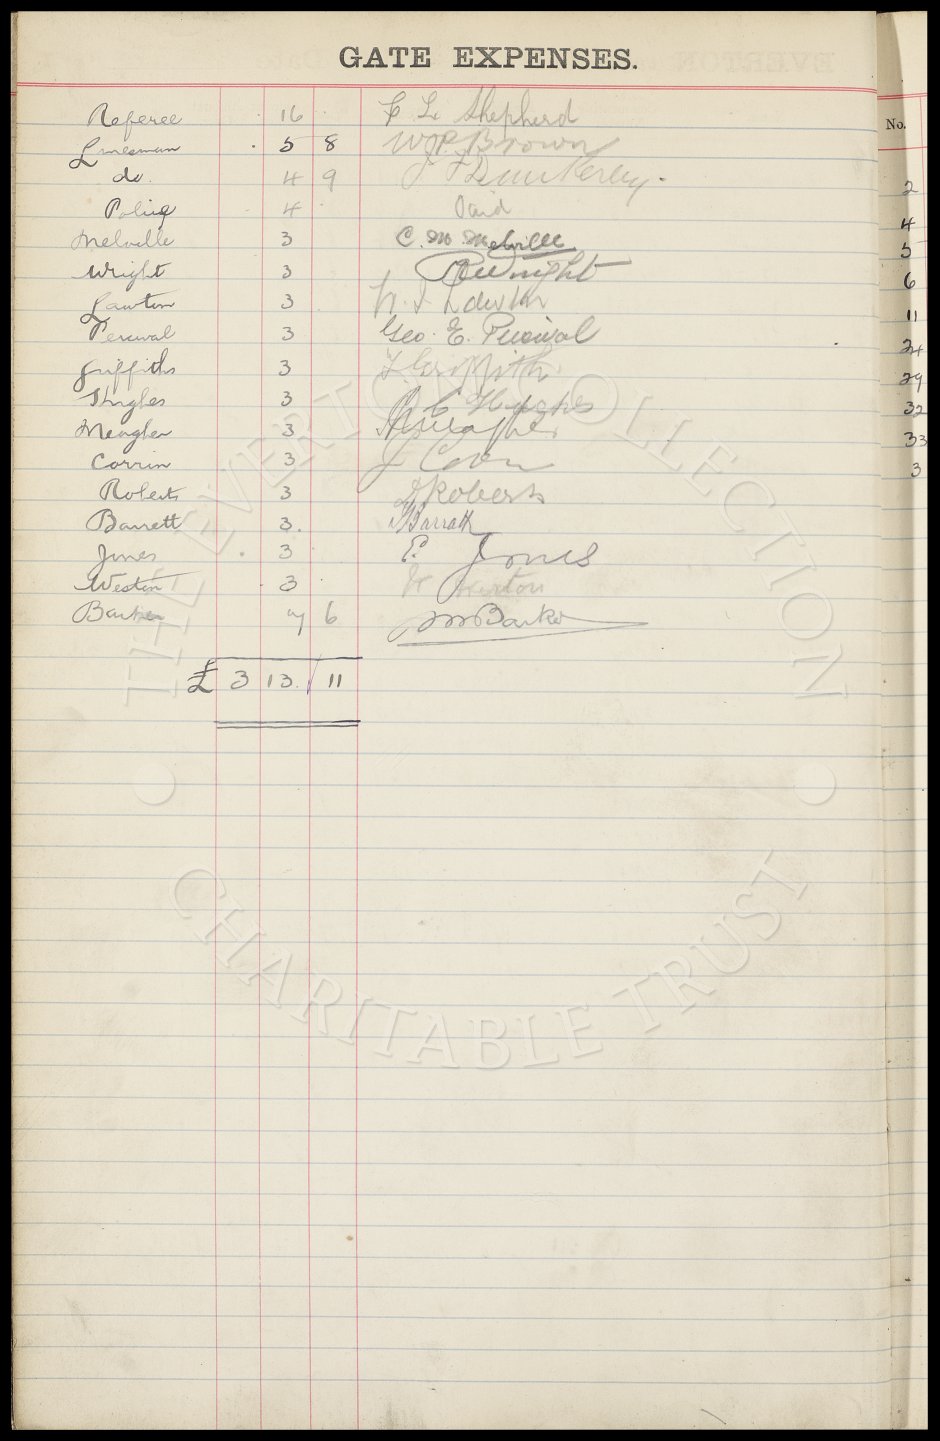 GATE EXPENSES.
Referee 16 F L Shepherd
Linesman 5 8 W P Brown
do. 4 9 J F Dunkerley.
Police 4 Paid
Melville 3 C. M. Melville
Wright 3 R W Wright
Lawton 3 Lawton
Percival 3 Geo. E. Percival
Griffiths 3 Griffith
Hughes 3 Hughes
Meagher 3 Meagher
Corrin 3 J
Roberts 3 Roberts
Barrett 3. Barratt
Jones 3 E. Jones
Weston 3
Barker 7 6 Barker
£ 3 13. 11
No.
2
4
5
6
11
24
29
32
33
3
THE EVERTON COLLECTION
CHARITABLE TRUST